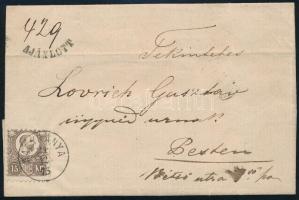 429
AJÁNLOTT
Tekintetes
Lovrich Gusztáv
ügyvéd urnak
Pesten
utza
15